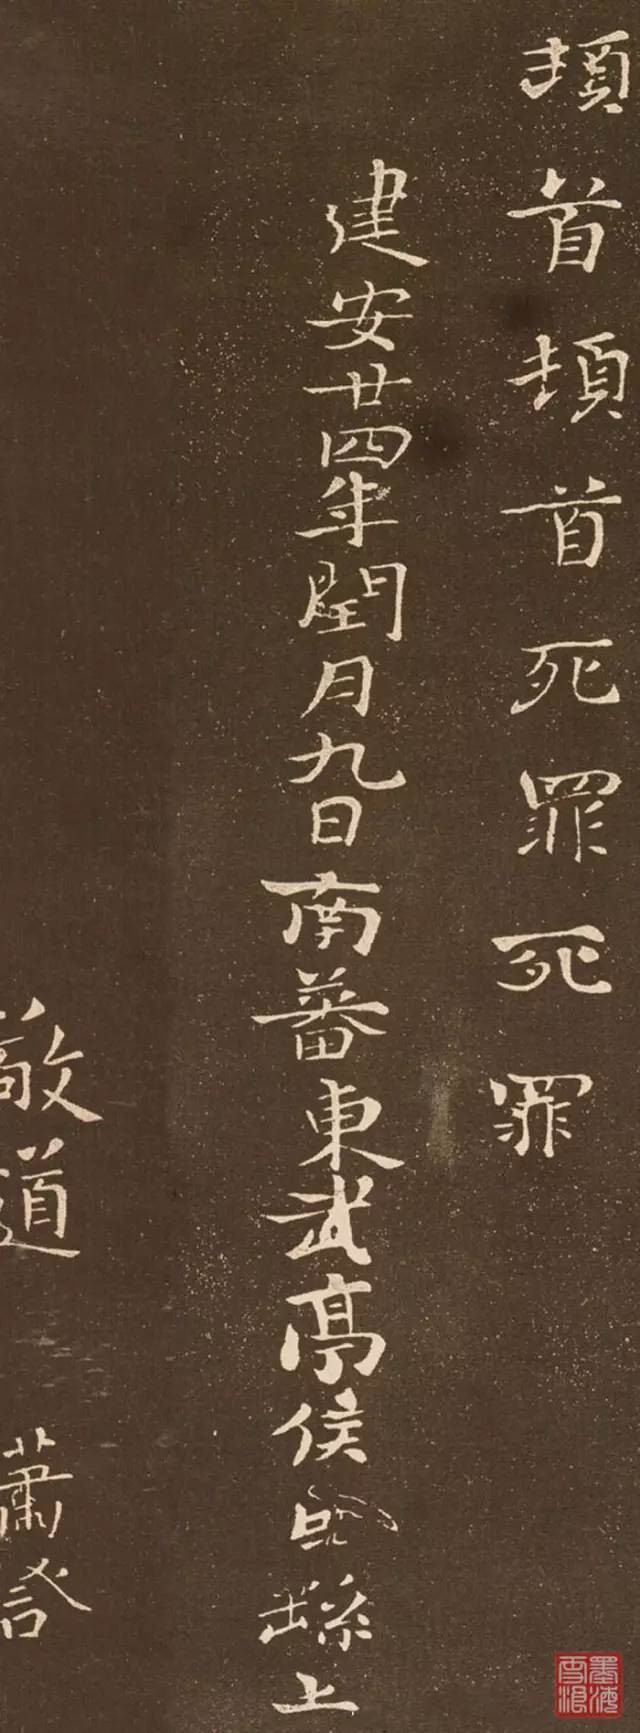 頓首頓首死罪死罪
建安廿四年閏月九日南蕃東武亭侯繇上
道 蕭
墨海
雪浪